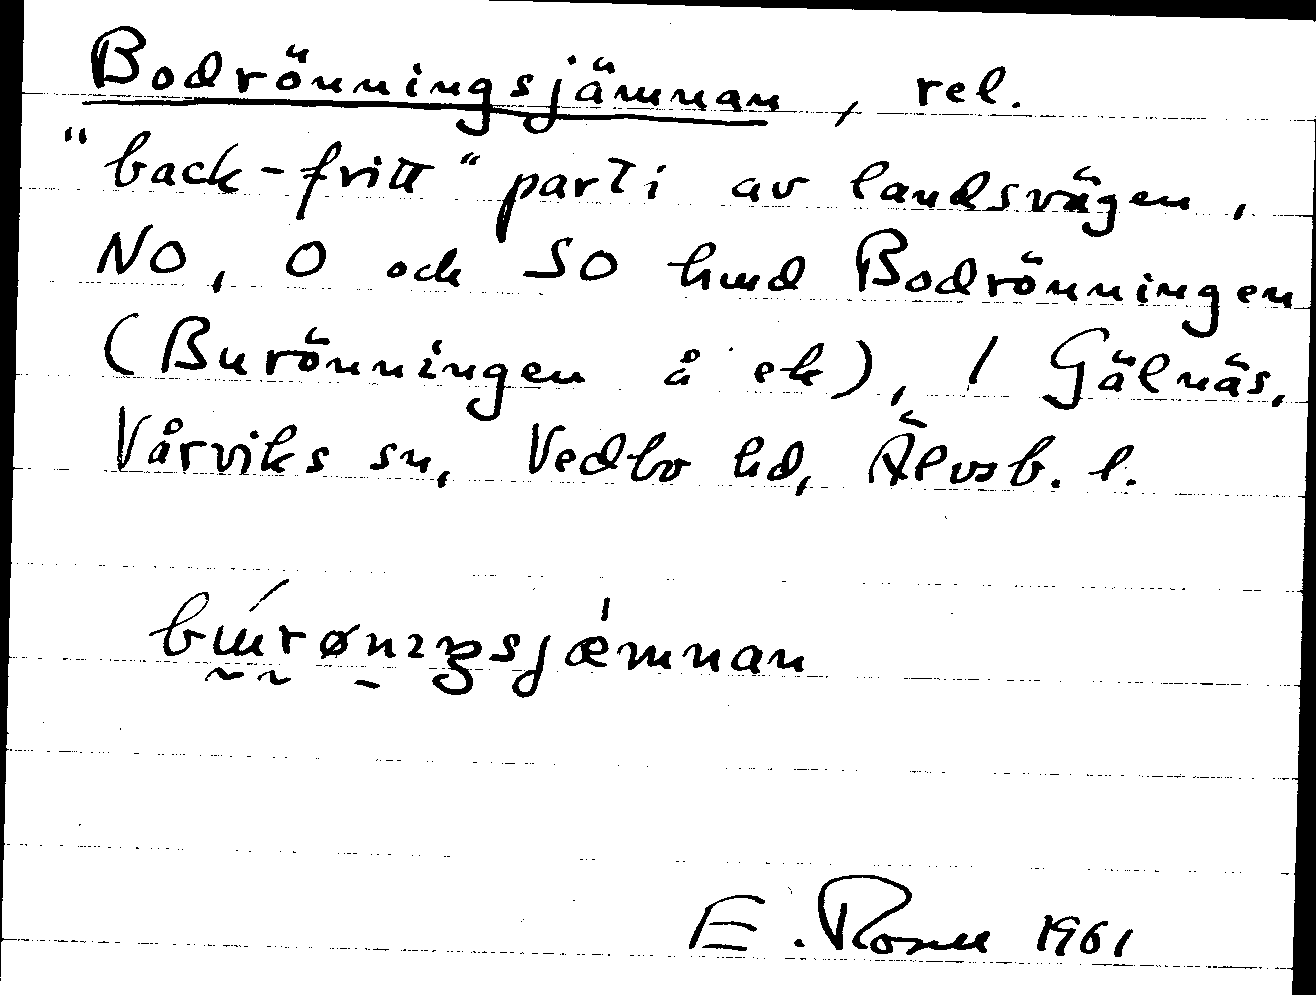 Bodrönningsjämnan, rel.
"back-fritt" parti av landsvägen,
NO, O och SO hmd Bodrönningen
(Burönningen å ek), 1 Gälnäs,
Vårviks sn, Vedbo hd, Älvsb. l.
E. Rosell 1961